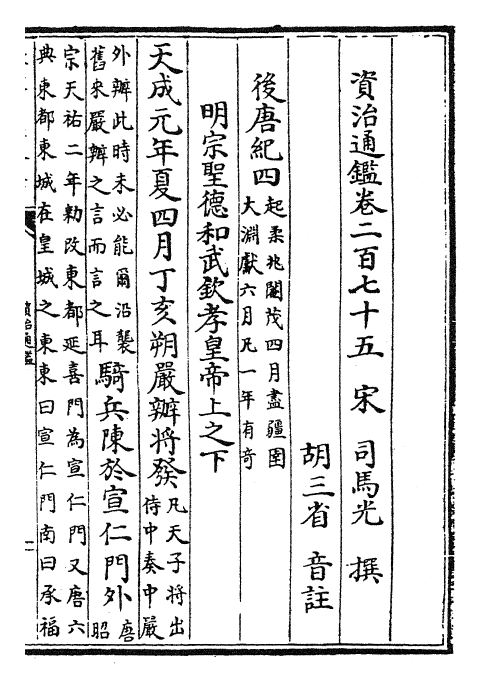 資治通鑑卷二百七十五　宋　司馬光　撰
胡三省　音註
後唐紀四起柔兆閹茂四月盡疆圉
大淵獻六月凡一年有奇
明宗聖德和武欽孝皇帝上之下
天成元年夏四月丁亥朔嚴辦將發凡天子將出
侍中奏中嚴
外辦此時未必能爾沿襲
舊來嚴辦之言而言之耳騎兵陳於宣仁門外唐
昭
宗天祐二年勅改東都延喜門為宣仁門又唐六
典東都東城在皇城之東東曰宣仁門南曰承福
資治通鑑